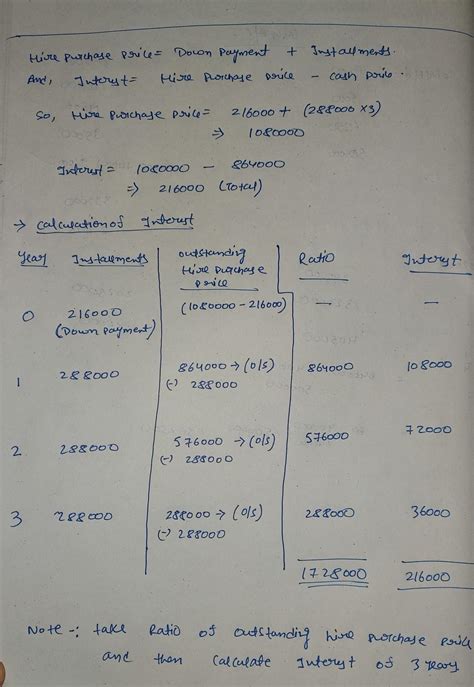 Hire Purchase Price = Down Payment + Installments.
And, Interst = Hire Purchase Price - Cash Price.
So, Hire Purchase Price = 216000 + (288000 x3)
⇒ 1080000
Interest = 1080000 - 864000
⇒ 216000 (Total)
→ Calculation of Interest
Year Installments Outstanding Hire Purchase Price Ratio Interest
0 216000 (1080000-216000) — —
(Down Payment)
1 288000 864000 → (O/S) 864000 108000
(-) 288000
2 288000 576000 → (O/S) 576000 72000
(-) 288000
3 288000 288000 → (O/S) 288000 36000
(-) 288000
1728000 216000
Note -: take Ratio of outstanding hire Purchase Price
and then Calculate Interest of 3 years